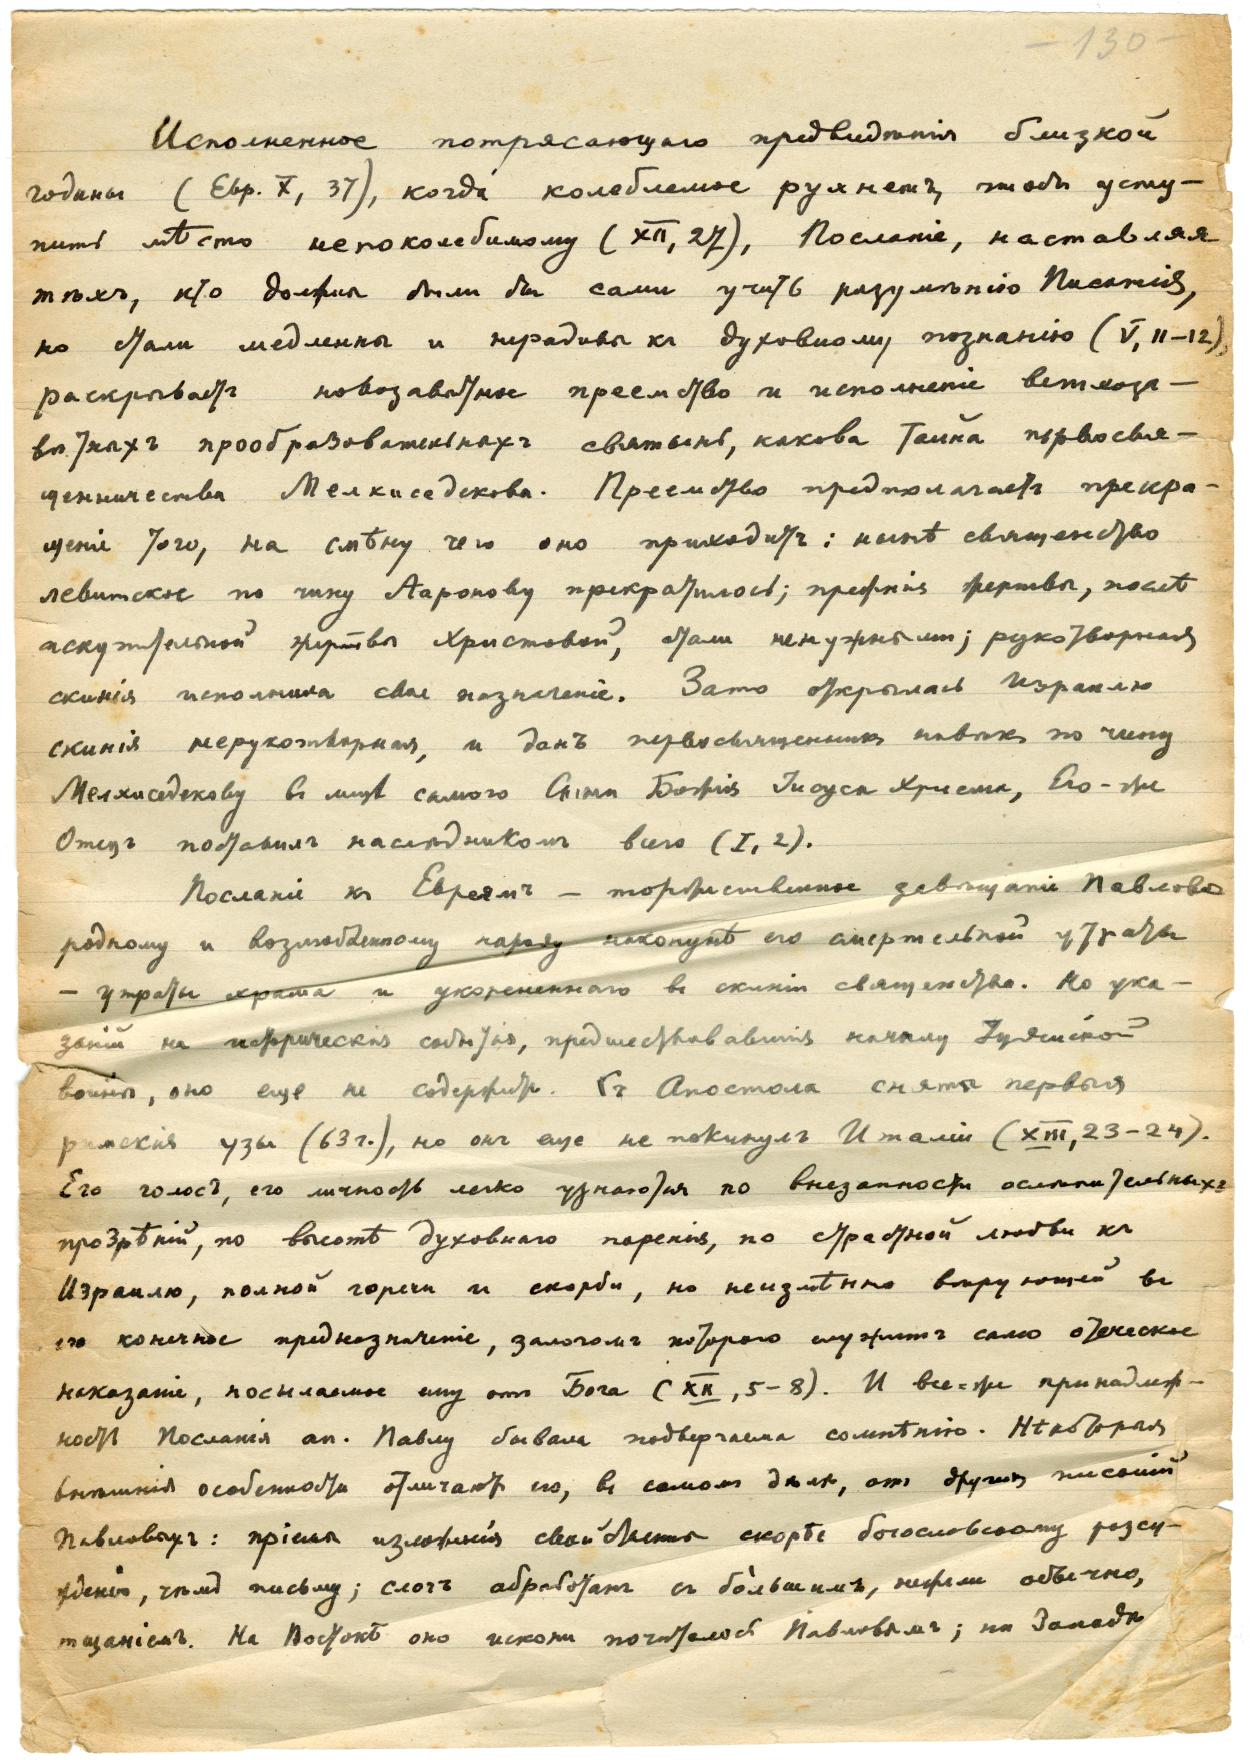 – 130 –
Исполненное потрясающаго предвидѣнія близкой
годины (Евр. X, 37), когда колеблемое рухнетъ чтобъ усту-
пить мѣсто непоколебимому (XII, 27), Посланіе, наставляя
тѣхъ, кто должны были бы сами учить разумѣнію Писанія,
но стали медленны и нерадивы къ духовному познанію (V, 11–12),
раскрываетъ новозавѣтное преемство и исполненіе ветхоза-
вѣтныхъ прообразовательныхъ святынь, какова тайна первосвя-
щенничества Мелхиседекова. Преемство предполагаетъ прекра-
щеніе того, на смѣну чего оно приходитъ: нынѣ священство
левитское по чину Ааронову прекратилось; прежнія жертвы, послѣ
искупительной жертвы Христовой, стали ненужными; рукотворная
скинія исполнила свое назначеніе. Зато открылась Израилю
скинія нерукотворная, и данъ первосвященникъ навѣкъ по чину
Мелхиседекову въ лицѣ самого Сына Божія Іисуса Христа, Его-же
Отецъ поставилъ наслѣдникомъ всего (I, 2).
Посланіе къ Евреямъ – торжественное завѣщаніе Павлово
родному и возлюбленному народу наканунѣ его смертельной утраты
– утраты храма и укорененнаго въ скиніи священства. Но ука-
заній на историческія событія, предшествовавшія началу Іудейской
войны, оно еще не содержитъ. Съ Апостола сняты первыя
римскія узы (63 г.), но онъ еще не покинулъ Италіи (XIII, 23–24).
Его голосъ, его личность легко узнаются по внезапности ослѣпительныхъ
прозрѣній, по высотѣ духовнаго паренія, по страстной любви къ
Израилю, полной горечи и скорби, но неизмѣнно вѣрующей въ
его конечное предназначеніе, залогомъ котораго служитъ само отеческое
наказаніе, посылаемое ему отъ Бога (XII, 5–8). И все-же принадлеж-
ность Посланія ап. Павлу бывала подвергаема сомнѣнію. Нѣкоторыя
внѣшнія особенности отличаютъ его, въ самомъ дѣлѣ, отъ другихъ писаній
Павловыхъ: пріемы изложенія свойственны скорѣе богословскому разсу-
жденію, чѣмъ письму; слогъ обработанъ съ бо́льшимъ, нежели обычно,
тщаніемъ. На Востокѣ оно искони почиталось Павловымъ; на Западѣ